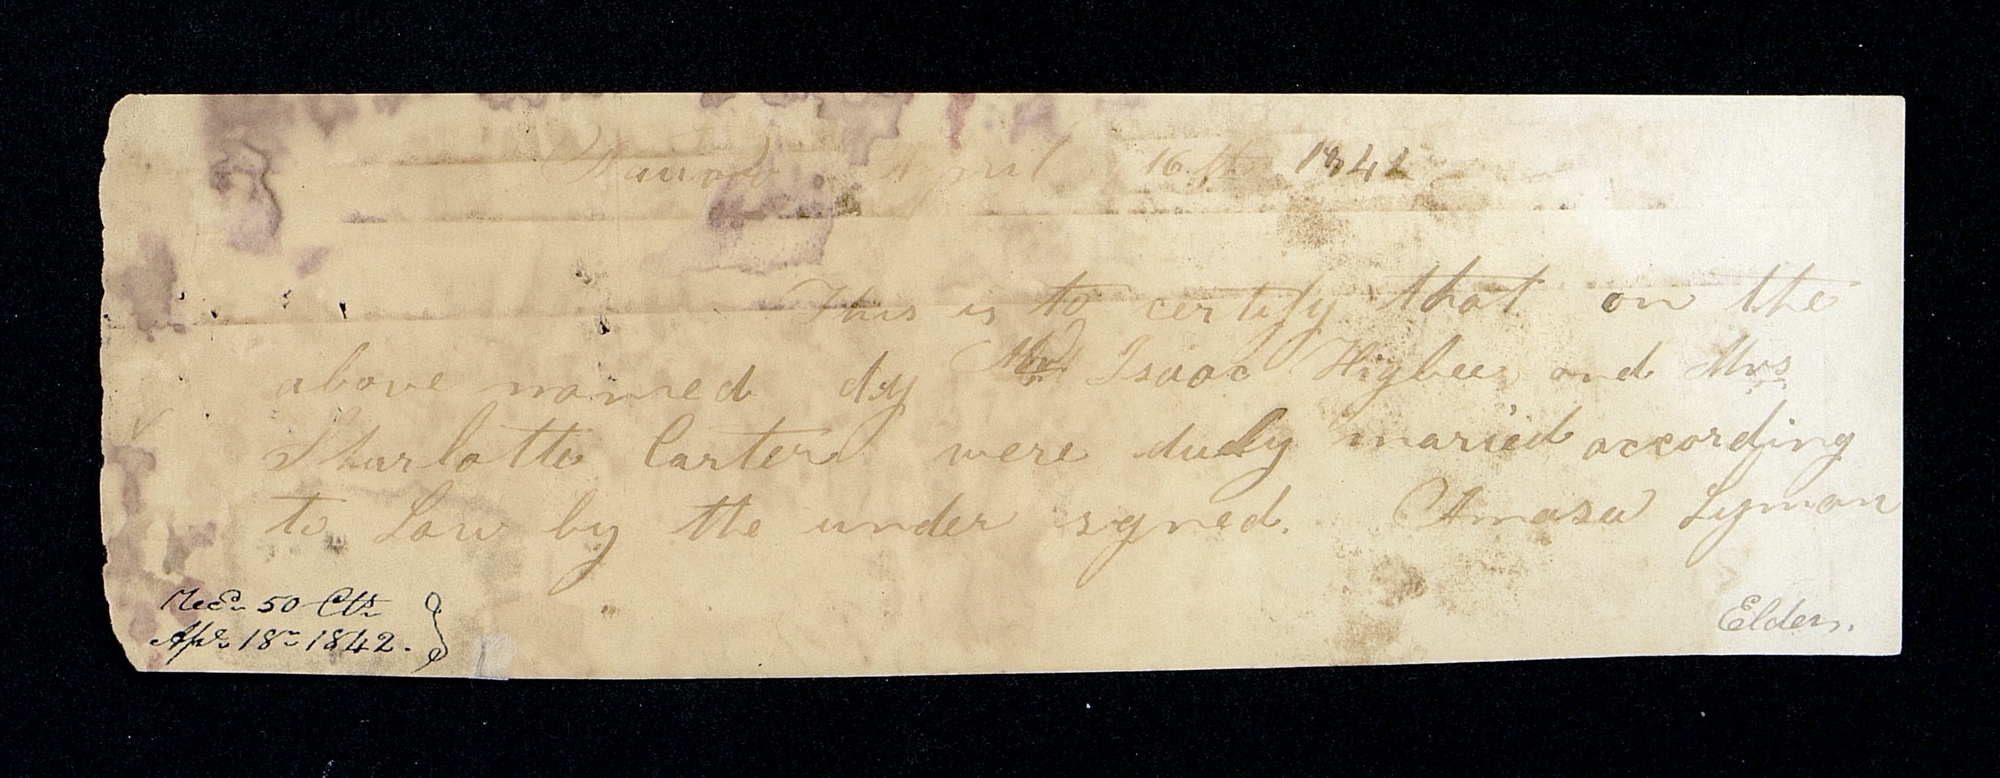 Nauvoo April 16th 1842
This is to certify that on the
above named dy Mr Isaac Higbee and Mrs
Sharlotte Carter were duely maried according
to Law by the under sgned. Amasa Lyman
Elder.
Recd. 50 Cts.
Apl. 18th 1842.